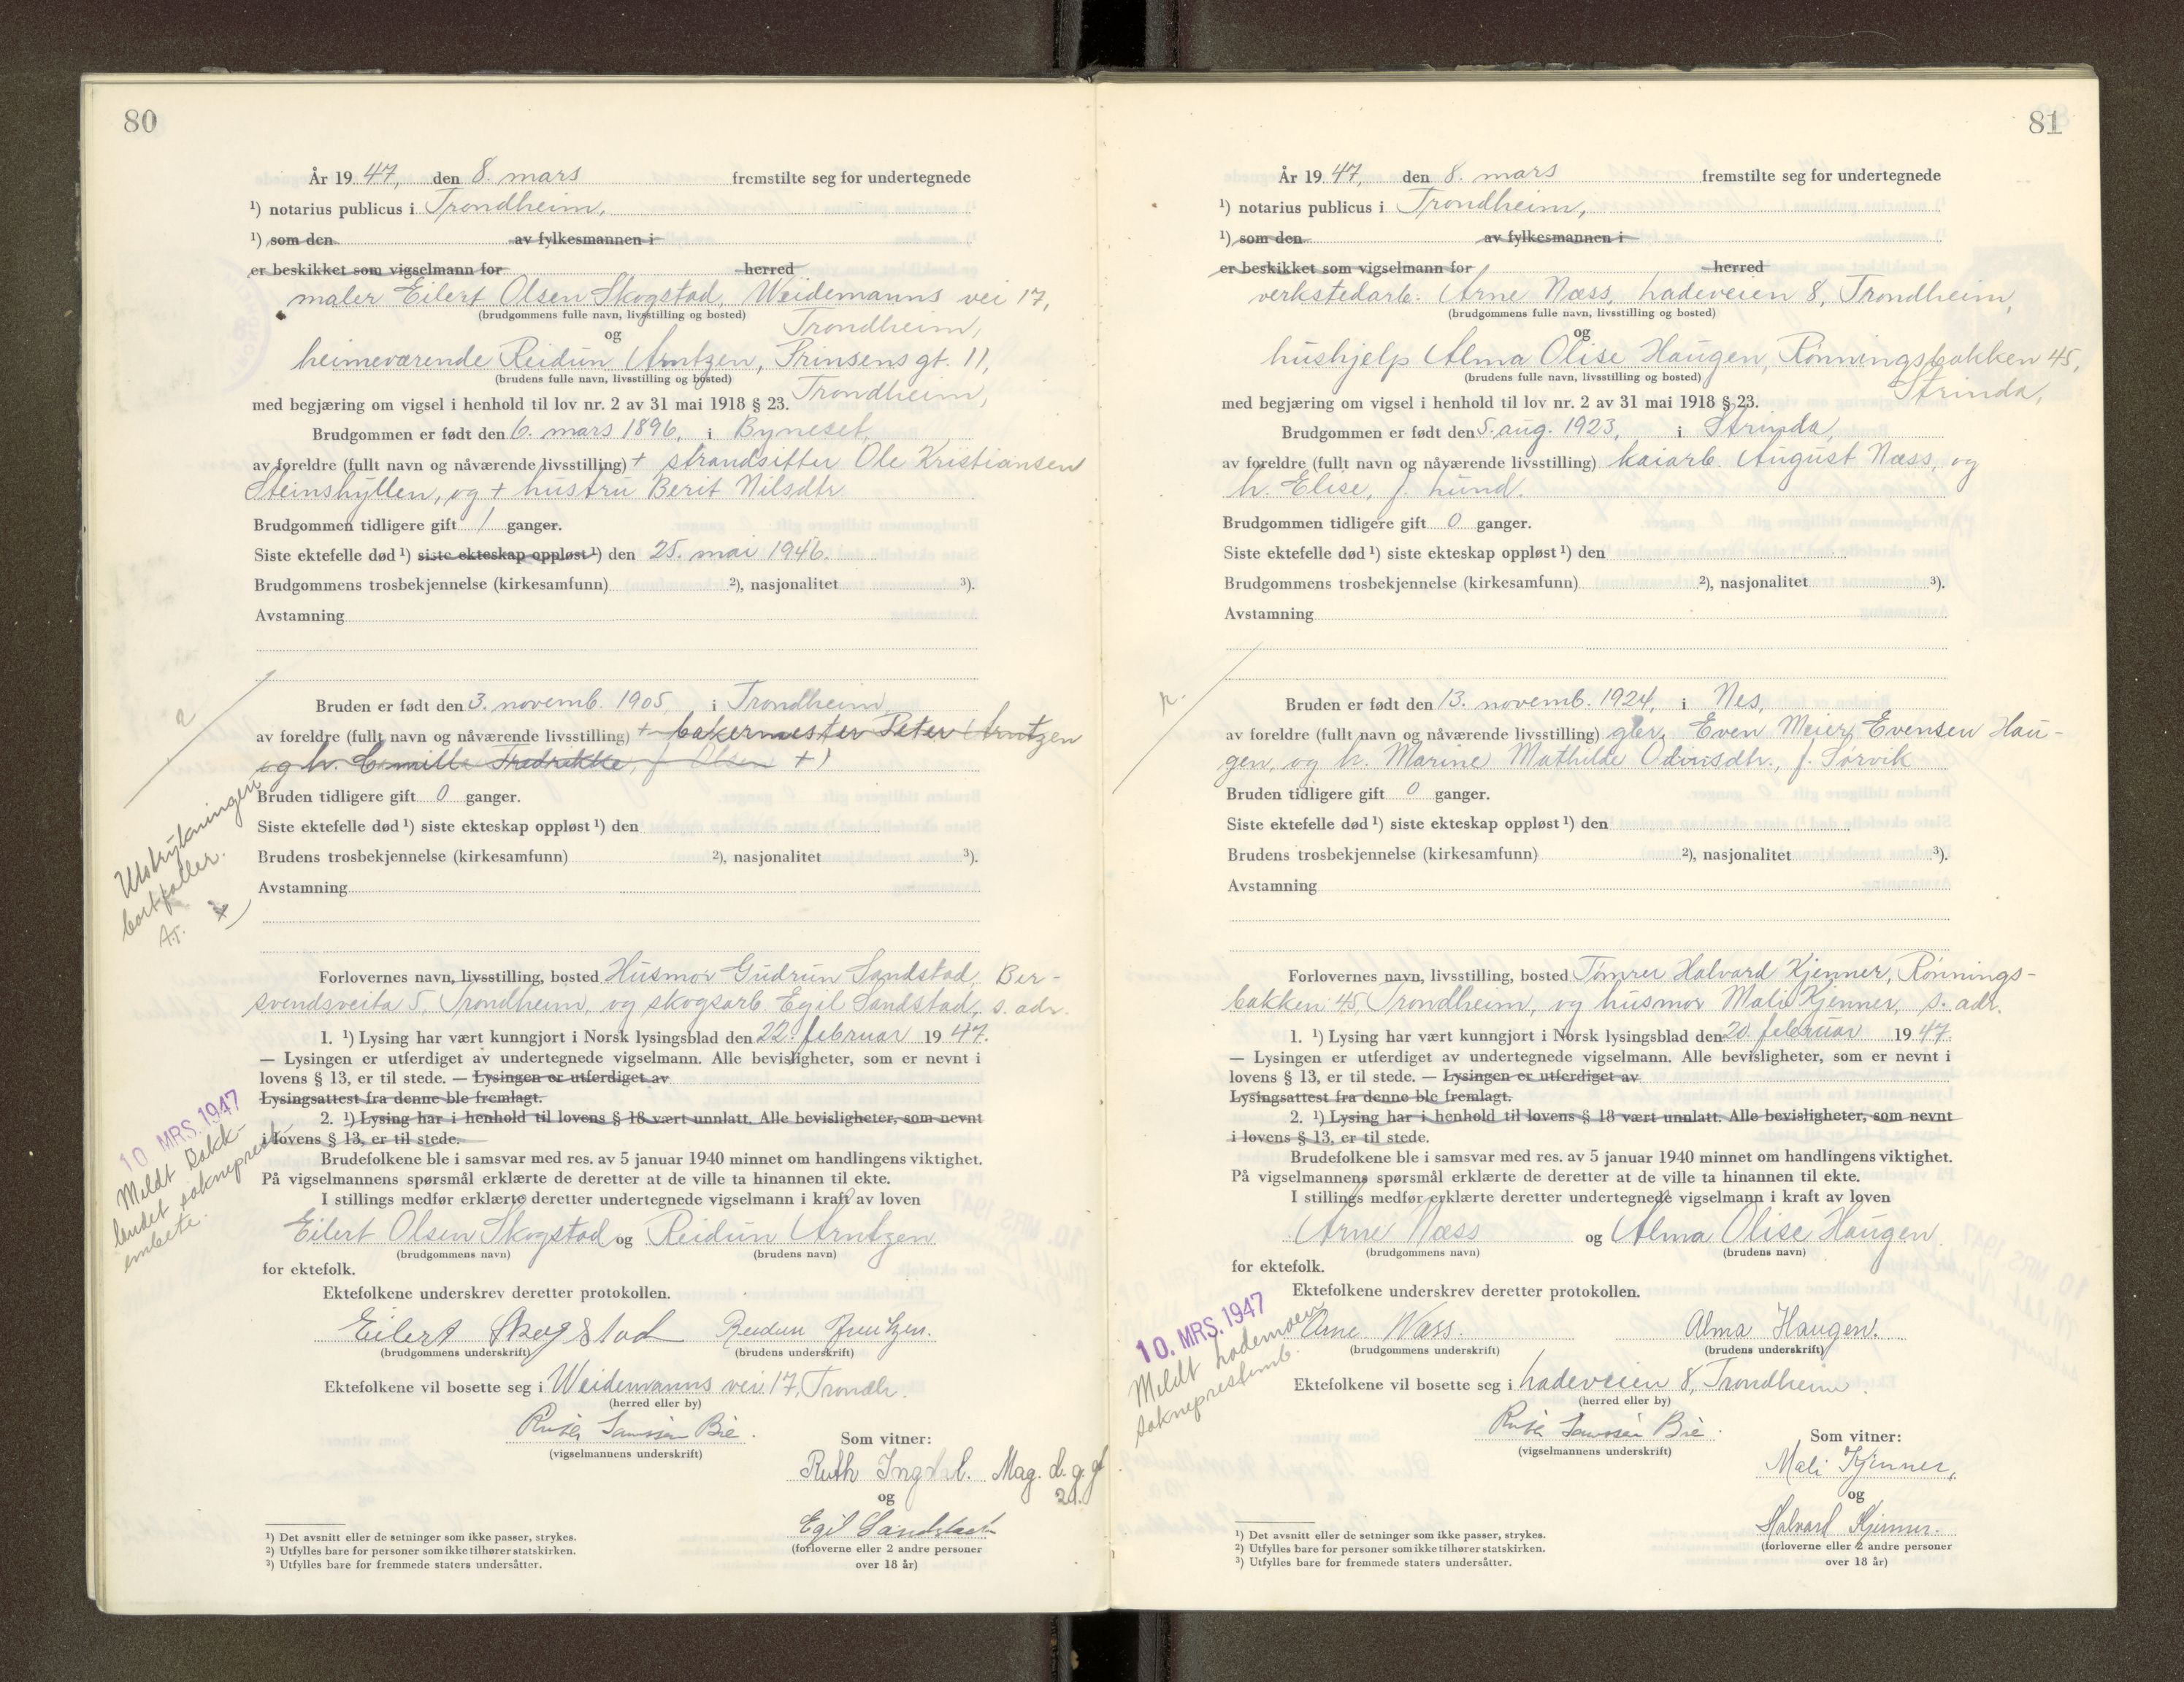 80
År 19 47, den 8. mars fremstilte seg for undertegnede
¹) notarius publicus i Trondheim,
¹) som den av fylkesmannen i
er beskikket som vigselmann for herred
maler Eilert Olsen Skogstad, Weidemanns vei 17,
(brudgommens fulle navn, livsstilling og bosted) Trondheim,
og
heimeværende Reidun Arntzen, Prinsens gt. 11,
(brudens fulle navn, livsstilling og bosted)
med begjæring om vigsel i henhold til lov nr. 2 av 31 mai 1918 § 23. Trondheim,
Brudgommen er født den 6. mars 1896, i Byneset,
av foreldre (fullt navn og nåværende livsstilling) + strandsitter Ole Kristiansen
Steinshyllen, og + hustru Berit Nilsdtr
Brudgommen tidligere gift 1 ganger.
Siste ektefelle død ¹) siste ekteskap oppløst ¹) den 25. mai 1946.
Brudgommens trosbekjennelse (kirkesamfunn) ²), nasjonalitet ³).
Avstamning
2
Bruden er født den 3. novemb. 1905, i Trondheim,
av foreldre (fullt navn og nåværende livsstilling) + bakermester Peter Arntzen
og h. Camilla Fredrikke, f. Olsen +)
Bruden tidligere gift 0 ganger.
Siste ektefelle død ¹) siste ekteskap oppløst ¹) den
Brudens trosbekjennelse (kirkesamfunn) ²), nasjonalitet ³).
Avstamning
Utstrykningen
bortfaller.
Forlovernes navn, livsstilling, bosted Husmor Gudrun Sandstad, Ber-
svendsveita 5, Trondheim, og skogsarb. Egil Sandstad, s. adr.
1. ¹) Lysing har vært kunngjort i Norsk lysingsblad den 22. februar 19 47.
— Lysingen er utferdiget av undertegnede vigselmann. Alle bevisligheter, som er nevnt i
lovens § 13, er til stede. — Lysingen er utferdiget av
Lysingsattest fra denne ble fremlagt.
2. ¹) Lysing har i henhold til lovens § 18 vært unnlatt. Alle bevisligheter, som nevnt
i lovens § 13, er til stede.
10 MRS. 1947
Meldt Bakk-
landet sokneprest-
embete.
Brudefolkene ble i samsvar med res. av 5 januar 1940 minnet om handlingens viktighet.
På vigselmannens spørsmål erklærte de deretter at de ville ta hinannen til ekte.
I stillings medfør erklærte deretter undertegnede vigselmann i kraft av loven
Eilert Olsen Skogstad og Reidun Arntzen
(brudgommens navn) (brudens navn)
for ektefolk.
Ektefolkene underskrev deretter protokollen.
Eilert Skogstad Reidun Arntzen.
(brudgommens underskrift) (brudens underskrift)
Ektefolkene vil bosette seg i Weidemanns vei 17, Trondh.
(herred eller by)
(vigselmannens underskrift)
Som vitner:
Ruth Ingdal. Mag. d. g. gt
21.
og
Egil Sandstad
(forloverne eller 2 andre personer
over 18 år)
¹) Det avsnitt eller de setninger som ikke passer, strykes.
²) Utfylles bare for personer som ikke tilhører statskirken.
³) Utfylles bare for fremmede staters undersåtter.
81
År 19 47, den 8. mars fremstilte seg for undertegnede
¹) notarius publicus i Trondheim,
¹) som den av fylkesmannen i
er beskikket som vigselmann for herred
verkstedarb. Arne Næss, Ladeveien 8, Trondheim,
(brudgommens fulle navn, livsstilling og bosted)
og
hushjelp Alma Olise Haugen, Rønningsbakken 45,
(brudens fulle navn, livsstilling og bosted) Strinda,
med begjæring om vigsel i henhold til lov nr. 2 av 31 mai 1918 § 23.
Brudgommen er født den 5. aug. 1923, i Strinda,
av foreldre (fullt navn og nåværende livsstilling) kaiarb. August Næss, og
h. Elise, f. Lund.
Brudgommen tidligere gift 0 ganger.
Siste ektefelle død ¹) siste ekteskap oppløst ¹) den
Brudgommens trosbekjennelse (kirkesamfunn) ²), nasjonalitet ³).
Avstamning
Bruden er født den 13. novemb. 1924, i Nes,
av foreldre (fullt navn og nåværende livsstilling) gbr. Even Meier Evensen Hau-
gen, og h. Marine Mathilde Odinsdtr., f. Sørvik
Bruden tidligere gift 0 ganger.
Siste ektefelle død ¹) siste ekteskap oppløst ¹) den
Brudens trosbekjennelse (kirkesamfunn) ²), nasjonalitet ³).
Avstamning
Forlovernes navn, livsstilling, bosted Tømrer Halvard Kjenner, Rønnings-
bakken 45, Trondheim, og husmor Mali Kjenner, s. adr.
1. ¹) Lysing har vært kunngjort i Norsk lysingsblad den 20 februar 19 47.
— Lysingen er utferdiget av undertegnede vigselmann. Alle bevisligheter, som er nevnt i
lovens § 13, er til stede. — Lysingen er utferdiget av
Lysingsattest fra denne ble fremlagt.
2. ¹) Lysing har i henhold til lovens § 18 vært unnlatt. Alle bevisligheter, som nevnt
i lovens § 13, er til stede.
Brudefolkene ble i samsvar med res. av 5 januar 1940 minnet om handlingens viktighet.
På vigselmannens spørsmål erklærte de deretter at de ville ta hinannen til ekte.
I stillings medfør erklærte deretter undertegnede vigselmann i kraft av loven
Arne Næss og Alma Olise Haugen
(brudgommens navn) (brudens navn)
for ektefolk.
Ektefolkene underskrev deretter protokollen.
10. MRS. 1947
Meldt Lademoen
sokneprestemb.
Arne Næss. Alma Haugen.
(brudgommens underskrift) (brudens underskrift)
Ektefolkene vil bosette seg i Ladeveien 8, Trondheim.
(herred eller by)
(vigselmannens underskrift)
Som vitner:
Mali Kjenner,
og
Halvard Kjenner.
(forloverne eller 2 andre personer
over 18 år)
¹) Det avsnitt eller de setninger som ikke passer, strykes.
²) Utfylles bare for personer som ikke tilhører statskirken.
³) Utfylles bare for fremmede staters undersåtter.